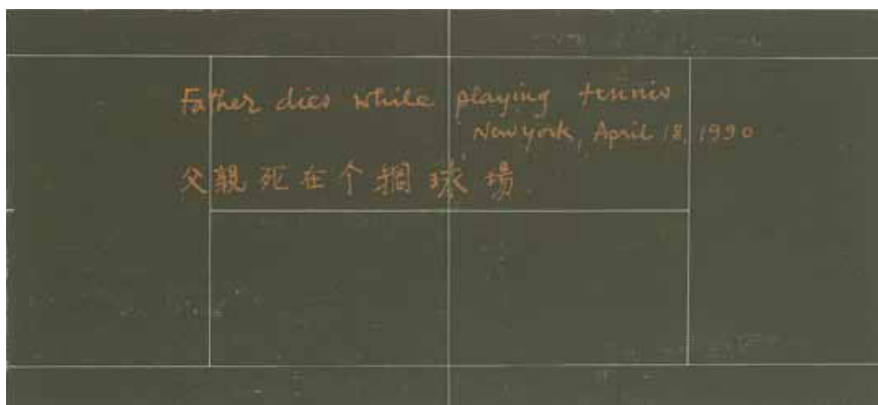 Father dies while playing tennis
New York, April 18, 1990
父親死在个摑球場